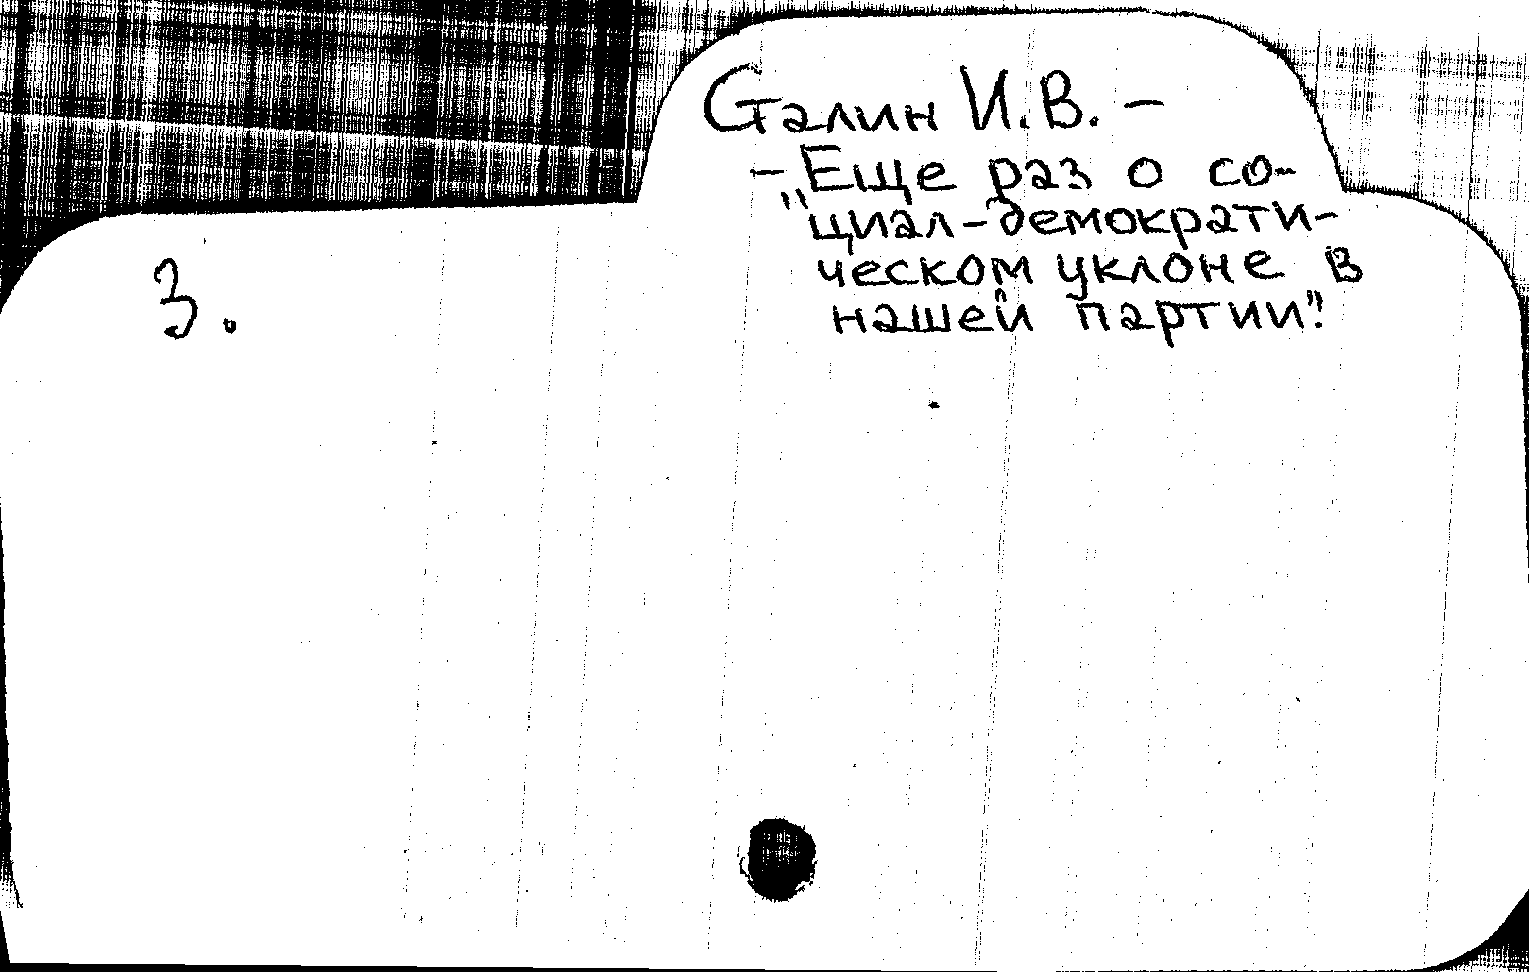 Сталин И.В. –
– „Еще раз о со-
циал-демократи-
ческом уклоне в
нашей партии".
3.